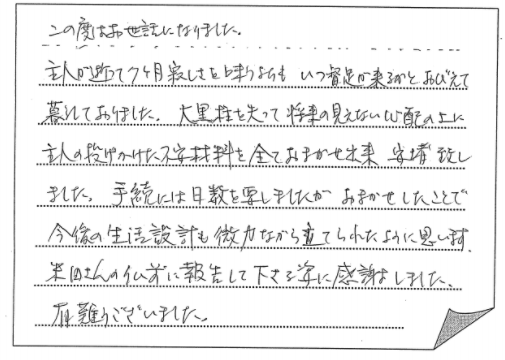 この度はお世話になりました。
主人が逝って7ヶ月寂しさを よりも いつ督促が来るかとおびえて
暮しておりました。大黒柱を失って将来の見えない心配の上に
主人の投げかけた不安材料を全ておまかせ出来 安堵致し
ました。手続には日数を要しましたが おまかせしたことで
今後の生活設計も微力ながら立てられたように思います。
米田さんの仏前に報告して下さる姿に感謝しました。
有難うございました。